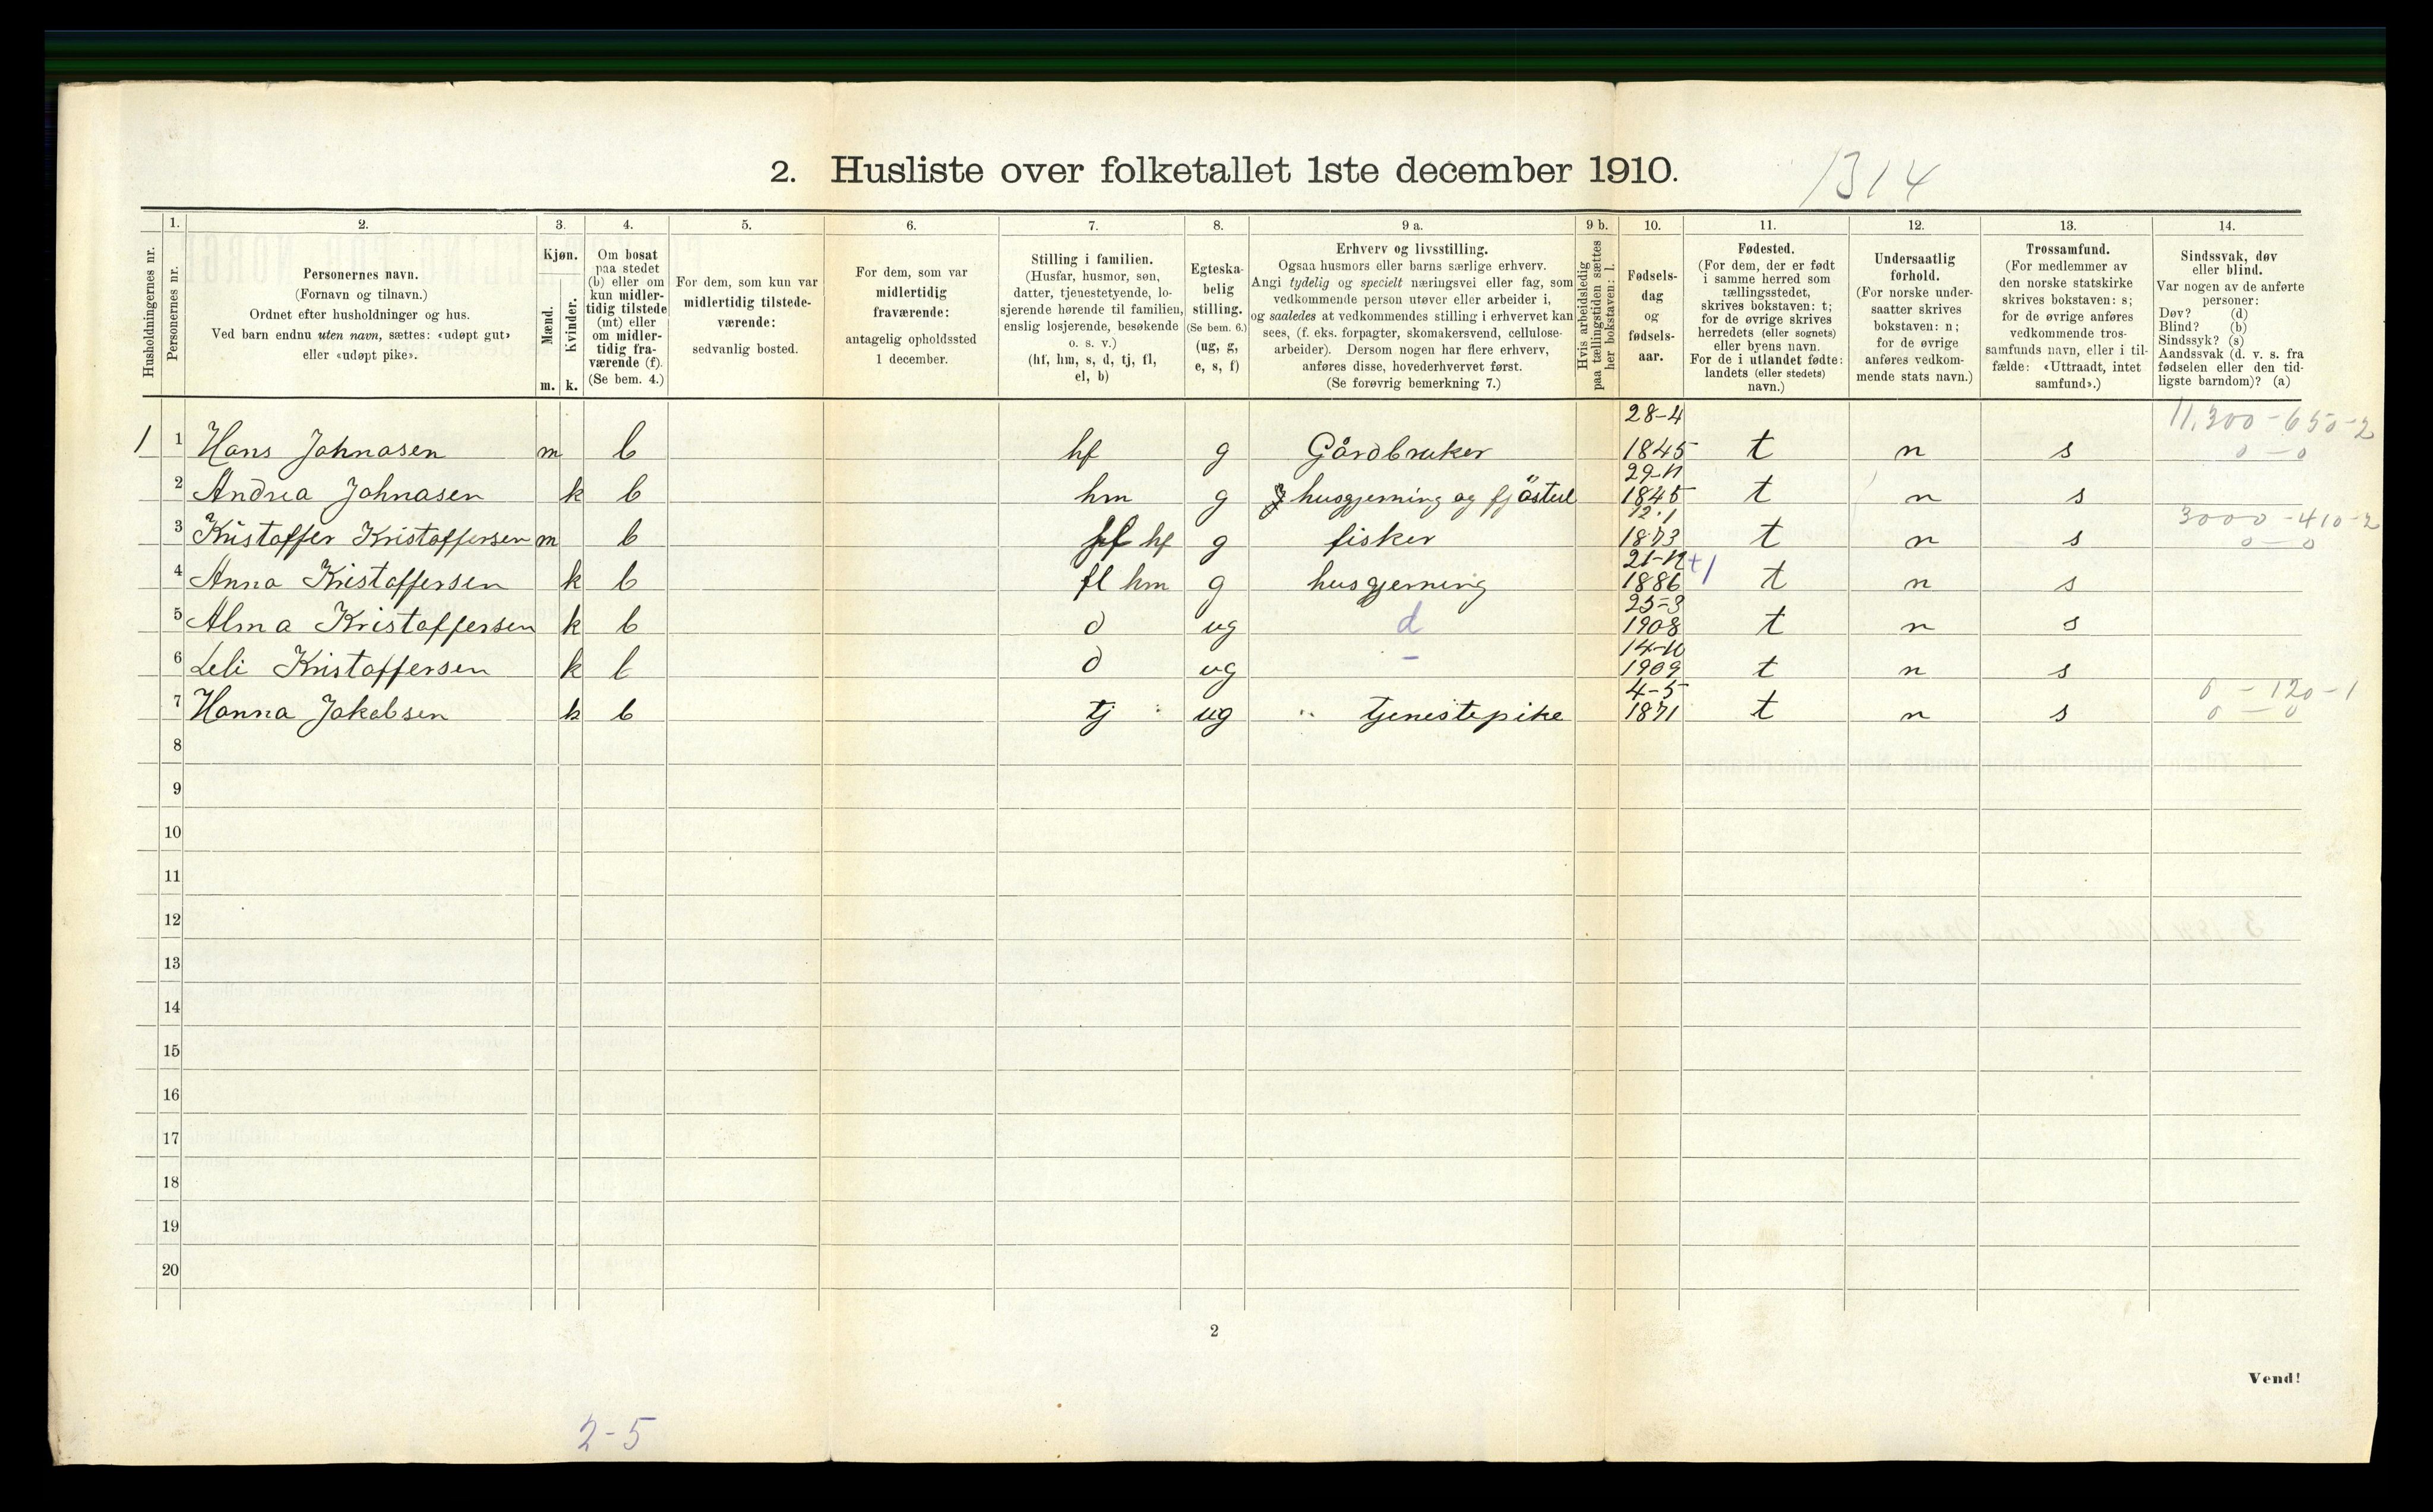 2. Husliste over folketallet 1ste december 1910.
1314
1. 2. 3. 4. 5. 6. 7. 8. 9 a. 9 b. 10. 11. 12. 13. 14.
Husholdningernes nr.
Personernes nr.
Personernes navn.
(Fornavn og tilnavn.)
Ordnet efter husholdninger og hus.
Ved barn endnu uten navn, sættes: «udøpt gut»
eller «udøpt pike».
Kjøn.
Mænd.
Kvinder.
m. k.
Om bosat
paa stedet
(b) eller om
kun midler-
tidig tilstede
(mt) eller
om midler-
tidig fra-
værende (f).
(Se bem. 4.)
For dem, som kun var
midlertidig tilstede-
værende:
sedvanlig bosted.
For dem, som var
midlertidig
fraværende:
antagelig opholdssted
1 december.
Stilling i familien.
(Husfar, husmor, søn,
datter, tjenestetyende, lo-
sjerende hørende til familien,
enslig losjerende, besøkende
o. s. v.)
(hf, hm, s, d, tj, fl,
el, b)
Egteska-
belig
stilling.
(Se bem. 6.)
(ug, g,
e, s, f)
Erhverv og livsstilling.
Ogsaa husmors eller barns særlige erhverv.
Angi tydelig og specielt næringsvei eller fag, som
vedkommende person utøver eller arbeider i,
og saaledes at vedkommendes stilling i erhvervet kan
sees, (f. eks. forpagter, skomakersvend, cellulose-
arbeider). Dersom nogen har flere erhverv,
anføres disse, hovederhvervet først.
(Se forøvrig bemerkning 7.)
Hvis arbeidsledig
paa tællingstiden sættes
her bokstaven: l.
Fødsels-
dag
og
fødsels-
aar.
Fødested.
(For dem, der er født
i samme herred som
tællingsstedet,
skrives bokstaven: t;
for de øvrige skrives
herredets (eller sognets)
eller byens navn.
For de i utlandet fødte:
landets (eller stedets)
navn.)
Undersaatlig
forhold.
(For norske under-
saatter skrives
bokstaven: n;
for de øvrige
anføres vedkom-
mende stats navn.)
Trossamfund.
(For medlemmer av
den norske statskirke
skrives bokstaven: s;
for de øvrige anføres
vedkommende tros-
samfunds navn, eller i til-
fælde: «Uttraadt, intet
samfund».)
Sindssvak, døv
eller blind.
Var nogen av de anførte
personer:
Døv? (d)
Blind? (b)
Sindssyk? (s)
Aandssvak (d. v. s. fra
fødselen eller den tid-
ligste barndom)? (a)
28-4 11.300-650-2
1 1 Hans Johnasen m b hf g Gårdbruker 1845 t n s 0-0
29-11
2 Andrea Johnasen k b hm g husgjerning og fjöstul 1845 t n s
12.1 3000-410-2
3 Kristoffer Kristoffersen m b hf g fisker 1873 t n s 0-0
21-12 +1
4 Anna Kristoffersen k b fl hm g husgjerning 1886 t n s
25-3
5 Alma Kristoffersen k b d ug d 1908 t n s
14-10
6 Leli Kristoffersen k b d ug - 1909 t n s
4-5 0-120-1
7 Hanna Jakobsen k b tj ug tjenestepike 1871 t n s 0-0
8
9
10
11
12
13
14
15
16
17
18
19
20
2
Vend!
2-5